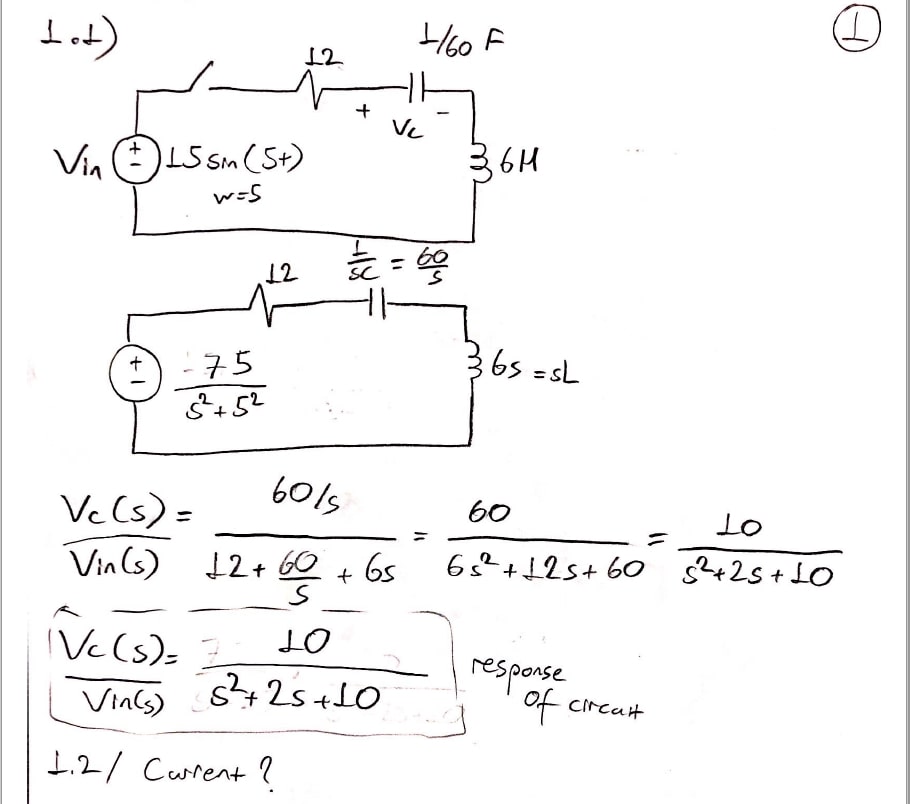 1.1) 1/60 F ①
12
+ Vc -
Vin + - 15 sin(5t) 6H
w=5
12 1/sC = 60/s
+ - 75/(s²+5²) 6s = sL
Vc(s)/Vin(s) = (60/s)/(12 + 60/s + 6s) = 60/(6s²+12s+60) = 10/(s²+2s+10)
Vc(s)/Vin(s) = 10/(s²+2s+10) response
of circuit
1.2/ Current ?